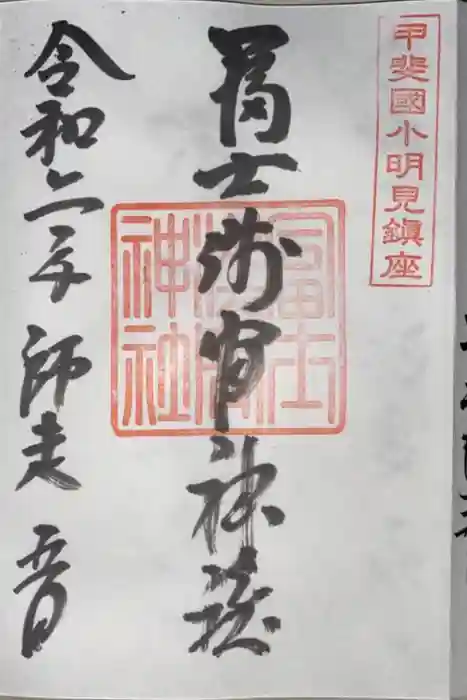 甲斐國小明見鎮座
冨士浅間神社
冨士
浅間
神社
令和二年師走